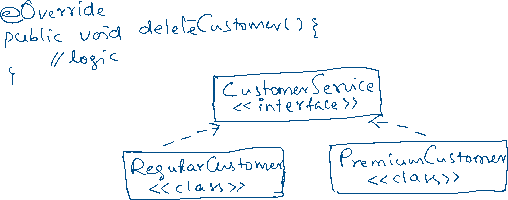 @Override
public void deleteCustomer() {
// logic
}
CustomerService
<<interface>>
RegularCustomer
<<class>>
PremiumCustomer
<<class>>